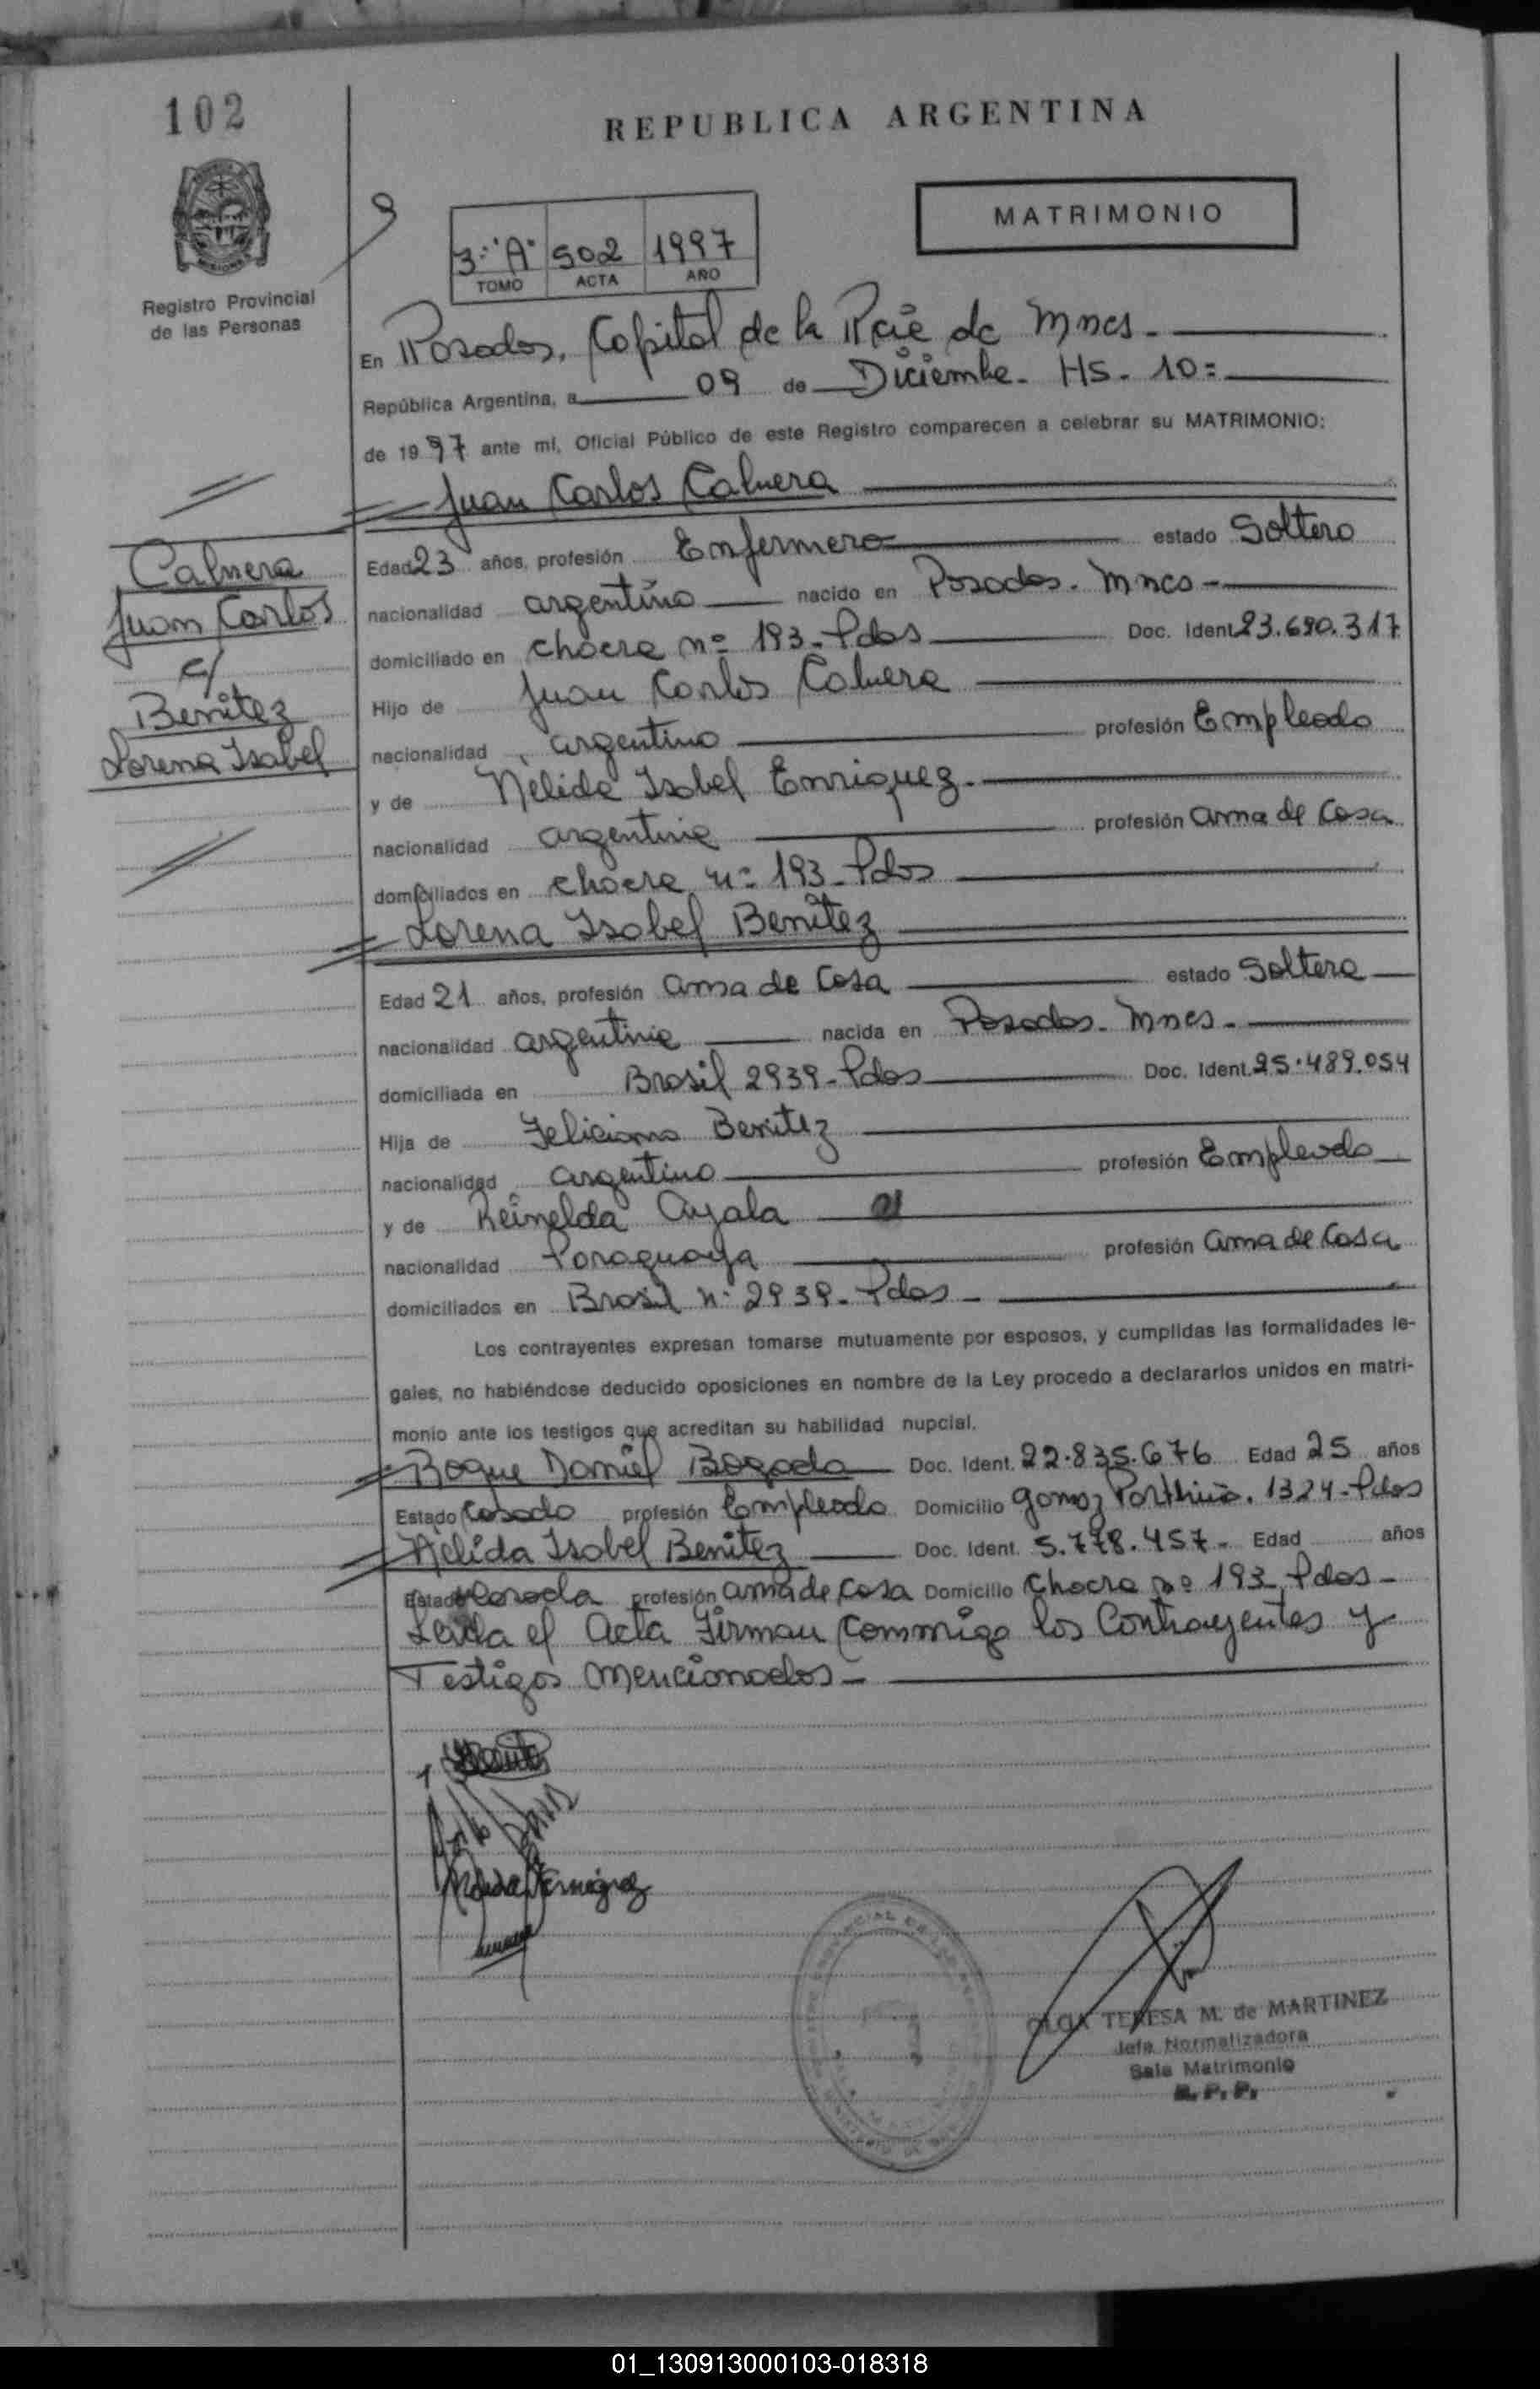 102
REPUBLICA ARGENTINA
MATRIMONIO
3º "A" 502 1997
TOMO ACTA AÑO
Registro Provincial
de las Personas
En Posadas, Capital de la Pcie de Mnes.
República Argentina, a 09 de Diciembre. HS. 10=
de 1997 ante mí, Oficial Público de este Registro comparecen a celebrar su MATRIMONIO:
Juan Carlos Cabrera
Cabrera
Juan Carlos
c/
Benitez
Lorena Isabel
Edad 23 años, profesión Enfermero estado Soltero
nacionalidad argentino nacido en Posadas. Mnes
domiciliado en chacra nº 193. Pdas Doc. Ident. 23.690.317
Hijo de Juan Carlos Cabrera
nacionalidad argentino profesión Empleado
y de Nelida Isabel Enriquez.
nacionalidad argentina profesión ama de Casa
domiciliados en chacra nº 193. Pdas
Lorena Isabel Benitez
Edad 21 años, profesión ama de Casa estado Soltera
nacionalidad argentina nacida en Posadas. Mnes.
domiciliada en Brasil 2939. Pdas Doc. Ident. 25.489.054
Hija de Feliciano Benitez
nacionalidad argentino profesión Empleado
y de Reinelda Ayala
nacionalidad Paraguaya profesión ama de Casa
domiciliados en Brasil nº 2939. Pdas
Los contrayentes expresan tomarse mutuamente por esposos, y cumplidas las formalidades le-
gales, no habiéndose deducido oposiciones en nombre de la Ley procedo a declararlos unidos en matri-
monio ante los testigos que acreditan su habilidad nupcial.
Roque Daniel Bogado Doc. Ident. 22.835.676 Edad 25 años
Estado Casado profesión Empleado Domicilio gomez 1324. Pdas
Nelida Isabel Benitez Doc. Ident. 5.778.457. Edad años
Estado Casada profesión ama de casa Domicilio Chacra nº 193 Pdas
Leida el Acta Firman Conmigo los Contrayentes y
Testigos mencionados
OLGA TERESA M. de MARTINEZ
Jefa Normalizadora
Sala Matrimonio
R. P. P.
01_130913000103-018318